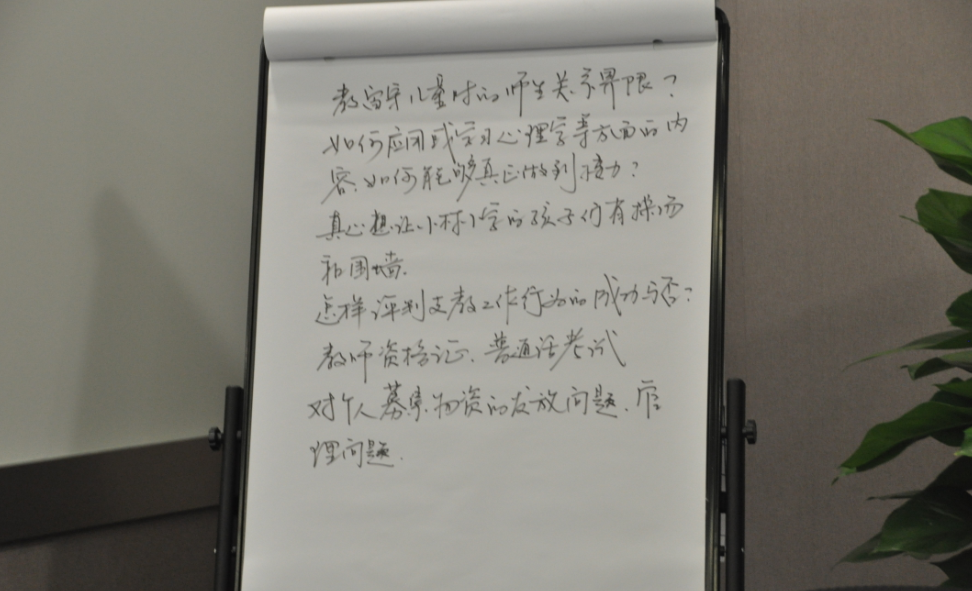 教留守儿童时的师生关系界限？
如何应用或学习心理学等方面的内
容、如何能够真正做到接力？
真心想让小林小学的孩子们有操场
和围墙.
怎样评判支教工作行为的成功与否？
教师资格证、普通话考试
对个人募集物资的发放问题、管
理问题.